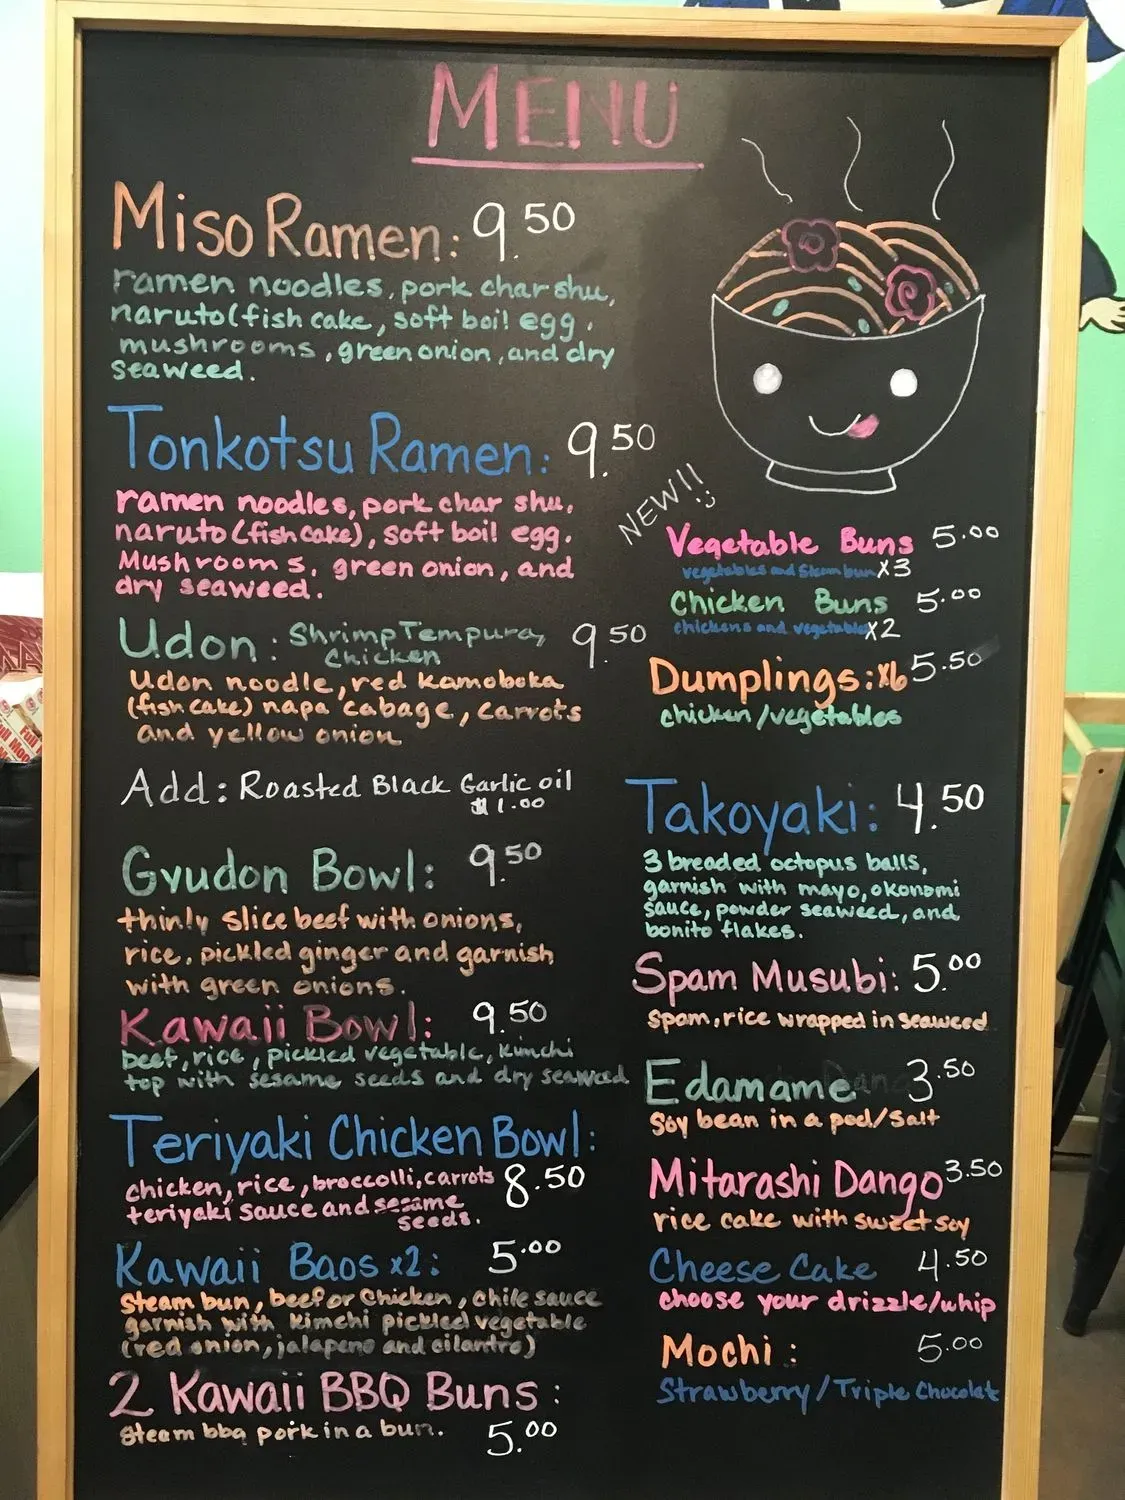 MENU
Miso Ramen: 9.50
ramen noodles, pork char shu,
naruto(fish cake, soft boil egg.
mushrooms, green onion, and dry
seaweed.
Tonkotsu Ramen: 9.50
ramen noodles, pork char shu,
naruto (fish cake), soft boil egg.
Mushrooms. green onion, and
dry seaweed.
Udon: Shrimp Tempura, 9.50
Chicken
Udon noodle, red Kamoboka
(fish cake) napa cabage, carrots
and yellow onion
Add: Roasted Black Garlic oil
$1.00
Gyudon Bowl: 9.50
thinly slice beef with onions,
rice, pickled ginger and garnish
with green onions.
Kawaii Bowl: 9.50
beef, rice, pickled vegetable, kimchi
top with sesame seeds and dry seaweed
Teriyaki Chicken Bowl:
chicken, rice, broccolli, carrots 8.50
teriyaki sauce and sesame
seeds.
Kawaii Baos x2: 5.00
Steam bun, beef or Chicken, chile sauce
garnish with Kimchi pickled vegetable
(red onion, jalapeno and cilantro)
2 Kawaii BBQ Buns:
Steam bbq pork in a bun. 5.00
NEW!!
Vegetable Buns 5.00
vegetables and Steam bun x3
Chicken Buns 5.00
chickens and vegetables x2
Dumplings: x6 5.50
chicken/vegetables
Takoyaki: 4.50
3 breaded octopus balls,
garnish with mayo, okonomi
sauce, powder seaweed, and
bonito flakes.
Spam Musubi: 5.00
Spam, rice wrapped in seaweed
Edamame 3.50
Soy bean in a pod/salt
Mitarashi Dango 3.50
rice cake with sweet soy
Cheese Cake 4.50
choose your drizzle/whip
Mochi: 5.00
Strawberry/Triple Chocolat